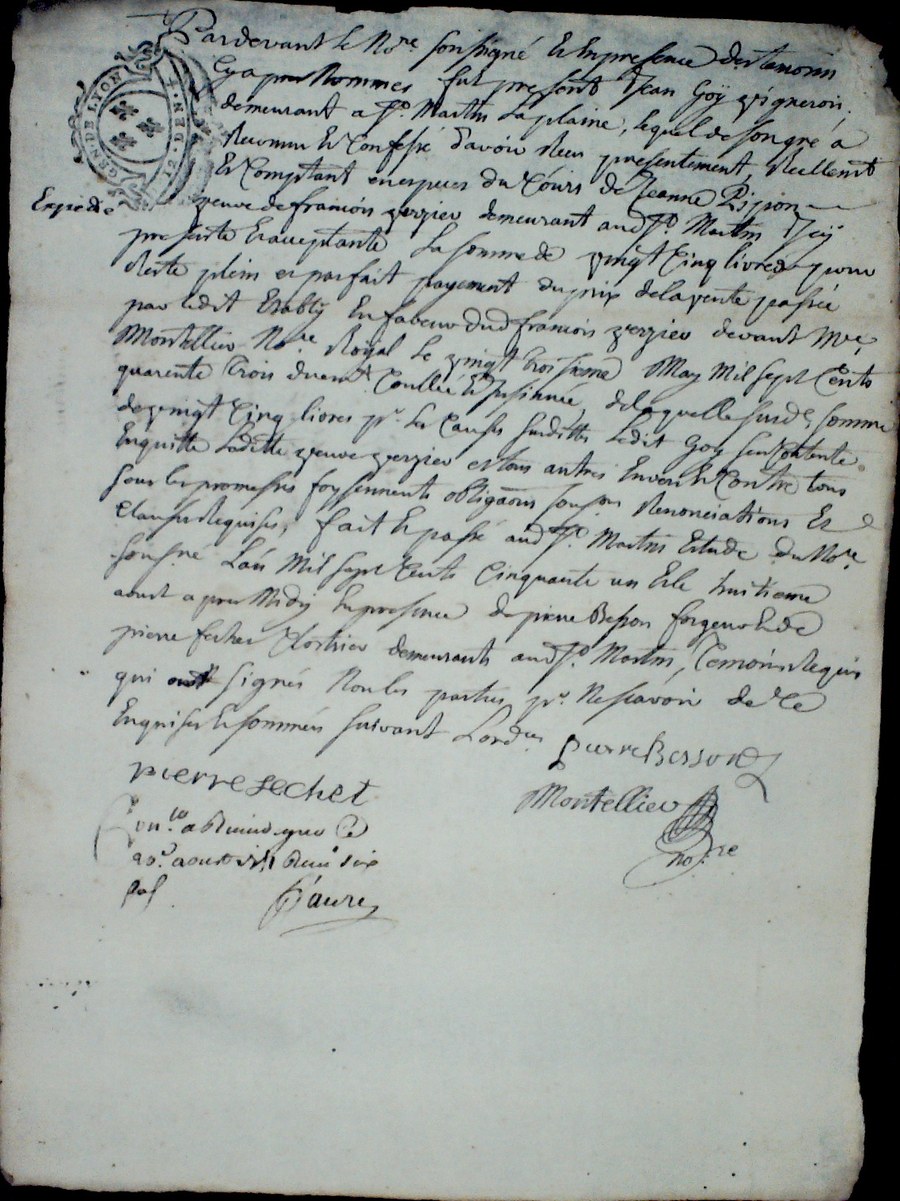 GEN. DE LYON
Pardevant le No.re soussigné Et En presence des temoins
Cy apres Nommes fut present Jean Goÿ vigneron,
demeurant a St. Martin La plaine, lequel de son gré a
Reconnu Et Confessé d'avoir Receu presentement, Reellemt
Et Comptant en especes du Cours de Jeanne
Expediée
veuve de francois verzieu demeurant aud St. Martin Icy
presente Et acceptante La somme de vingt Cinq livres pour
Reste plein et parfait payement du prix de la vente passée
par ledit Etably En faveur dud francois verzieu devant Me.
Montellier No.re Royal le vingt troisieme May Mil sept Cents
quarente Trois duemt. Controllée Et Insinuée, de laquelle susde. somme
de vingt Cinq livres pr. les Causes susdittes Ledit Goy sen Contente
Enquitte Laditte veuve verzieu et tous autres Envers Et Contre tous
sous les promesses foy serments obligaons Renonciations Et
Clauses Requises, fait Et passé aud St. Martin Etude du No.re
sousné L'an Mil sept Cents Cinquante un Et le huitieme
aoust apres Midy En presence de pierre Besson forgeur Et de
pierre sechet Cloutrier demeurants aud St. Martin, Temoins Requis
qui ont signés Non les parties pr. Ne scavoir de Ce
Enquises Et sommées suivant Lord.ce
pierre Besson
pierre sechet
Montellier
No.re
Con.lé a
20e. aoust 1751 Receu six
sols
faure